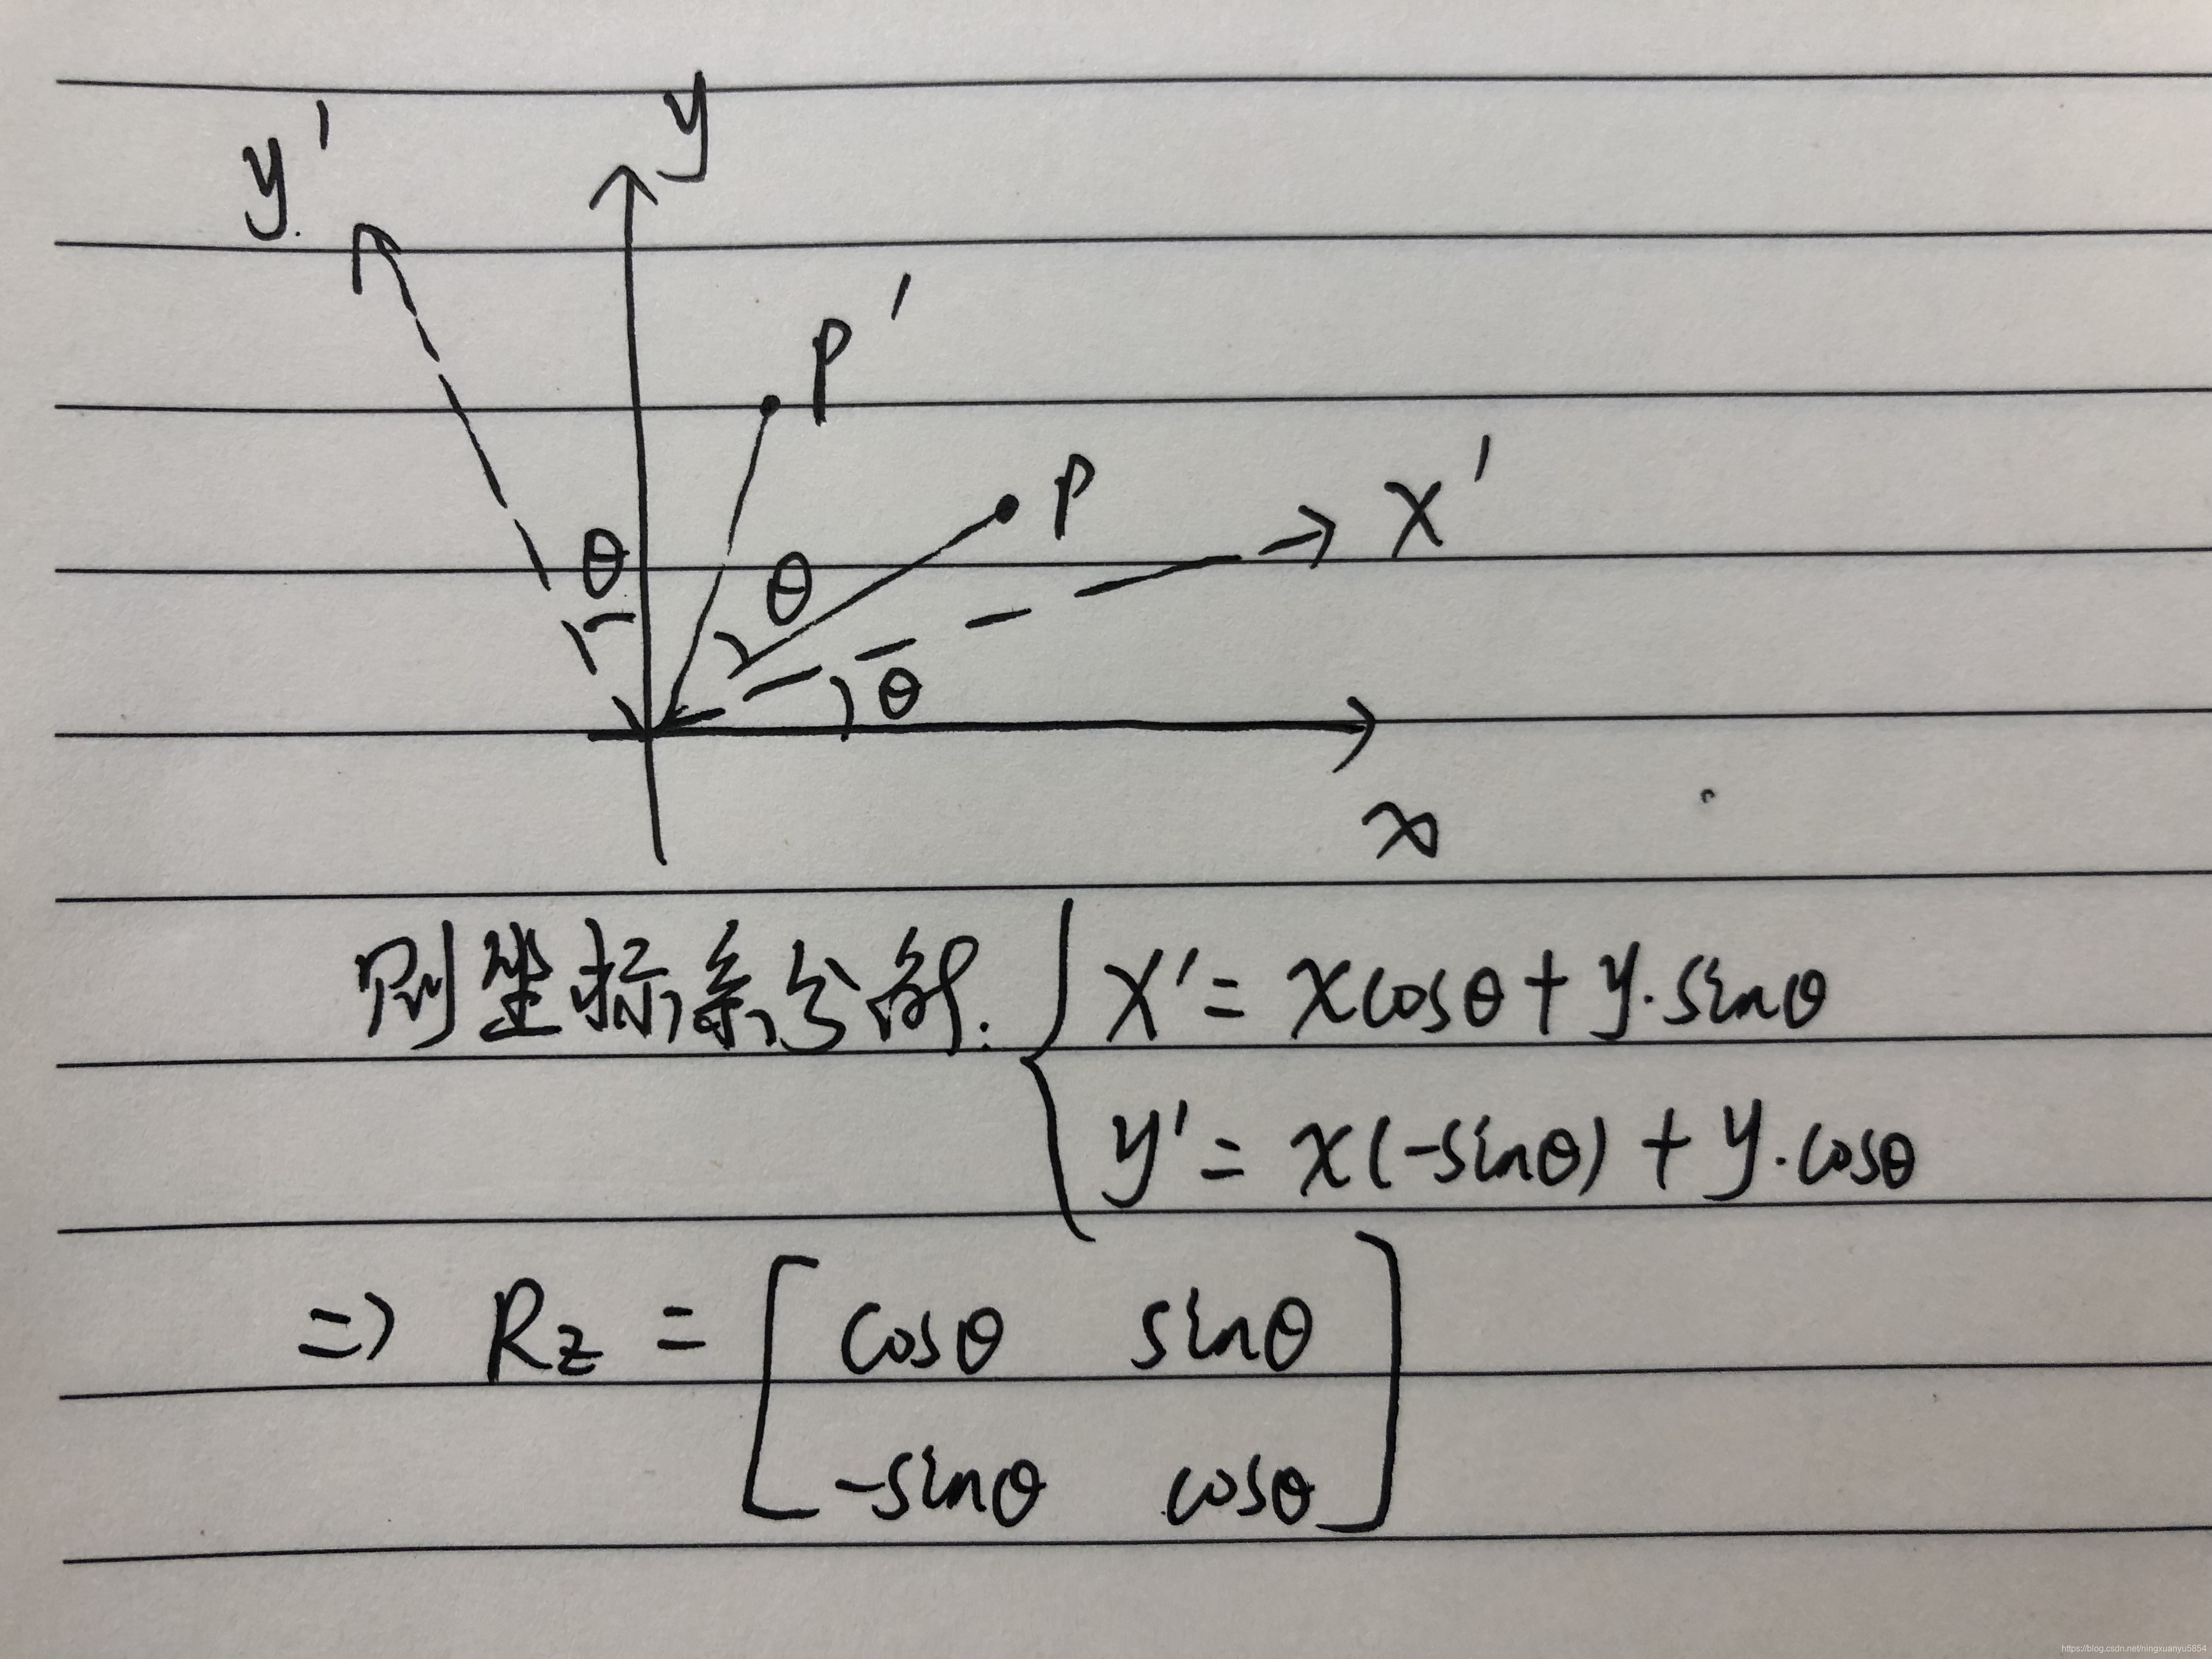 y
y'
P'
P
x'
θ
θ
θ
x
则坐标系分解: { x' = xcosθ + y·sinθ
y' = x(-sinθ) + y·cosθ
=> Rz = [ cosθ sinθ
-sinθ cosθ ]
https://blog.csdn.net/ningxuanyu5854